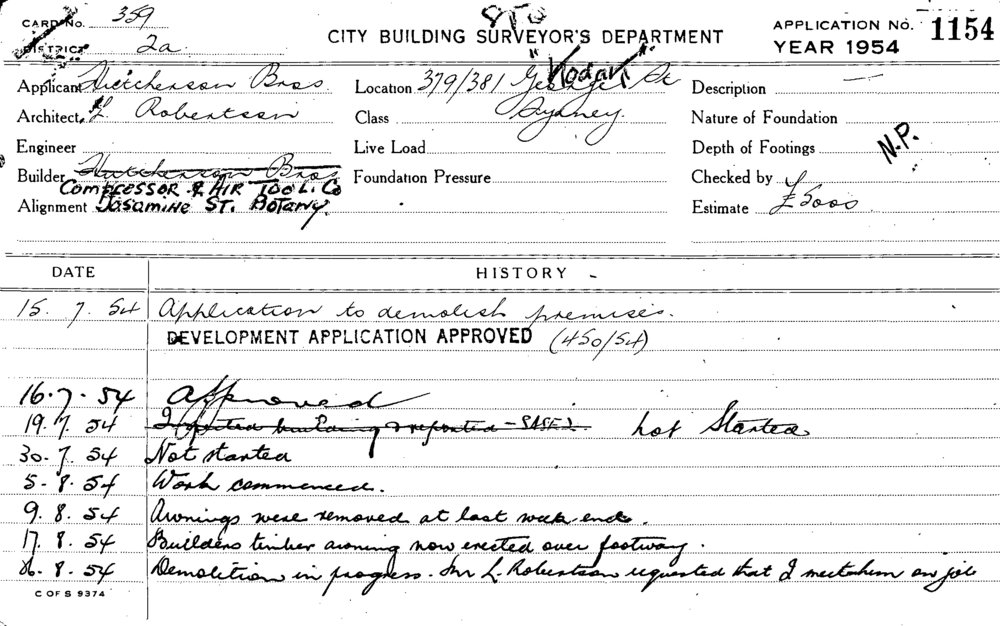 CARD No. 359
DISTRICT 2a
CITY BUILDING SURVEYOR'S DEPARTMENT
APPLICATION No. 1154
YEAR 1954
Applicant Hutcherson Bros
Location 379/381 George St
"Kodak"
Description
Architect L. Robertson
Class Sydney.
Nature of Foundation
Engineer
Live Load
Depth of Footings
N.P.
Builder Hutcherson Bros
COMPRESSOR & AIR TOOL. Co
Foundation Pressure
Checked by
Alignment JASAMINE ST. BOTANY.
Estimate £5000
DATE HISTORY
15. 7. 54 Application to demolish premises.
DEVELOPMENT APPLICATION APPROVED (450/54)
16.7.54 Approved
19.7.54 Inspected building & reported - SASE). not Started
30.7.54 Not started
5.8.54 Work commenced.
9.8.54 Awnings were removed at last week end.
17.8.54 Builders timber awning now erected over footway.
8.54 Demolition in progress. Mr L. Robertson requested that I meet him on job
C OF S 9374